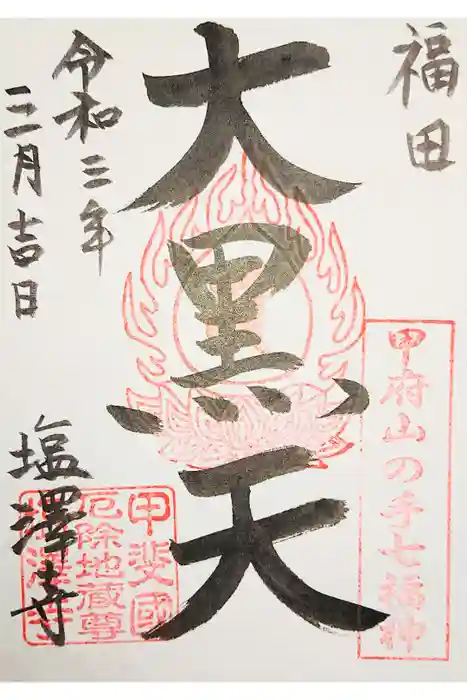 福田
甲府山の手七福神
大黒天
甲斐國
厄除地蔵尊
塩澤寺
令和三年
三月吉日
塩澤寺